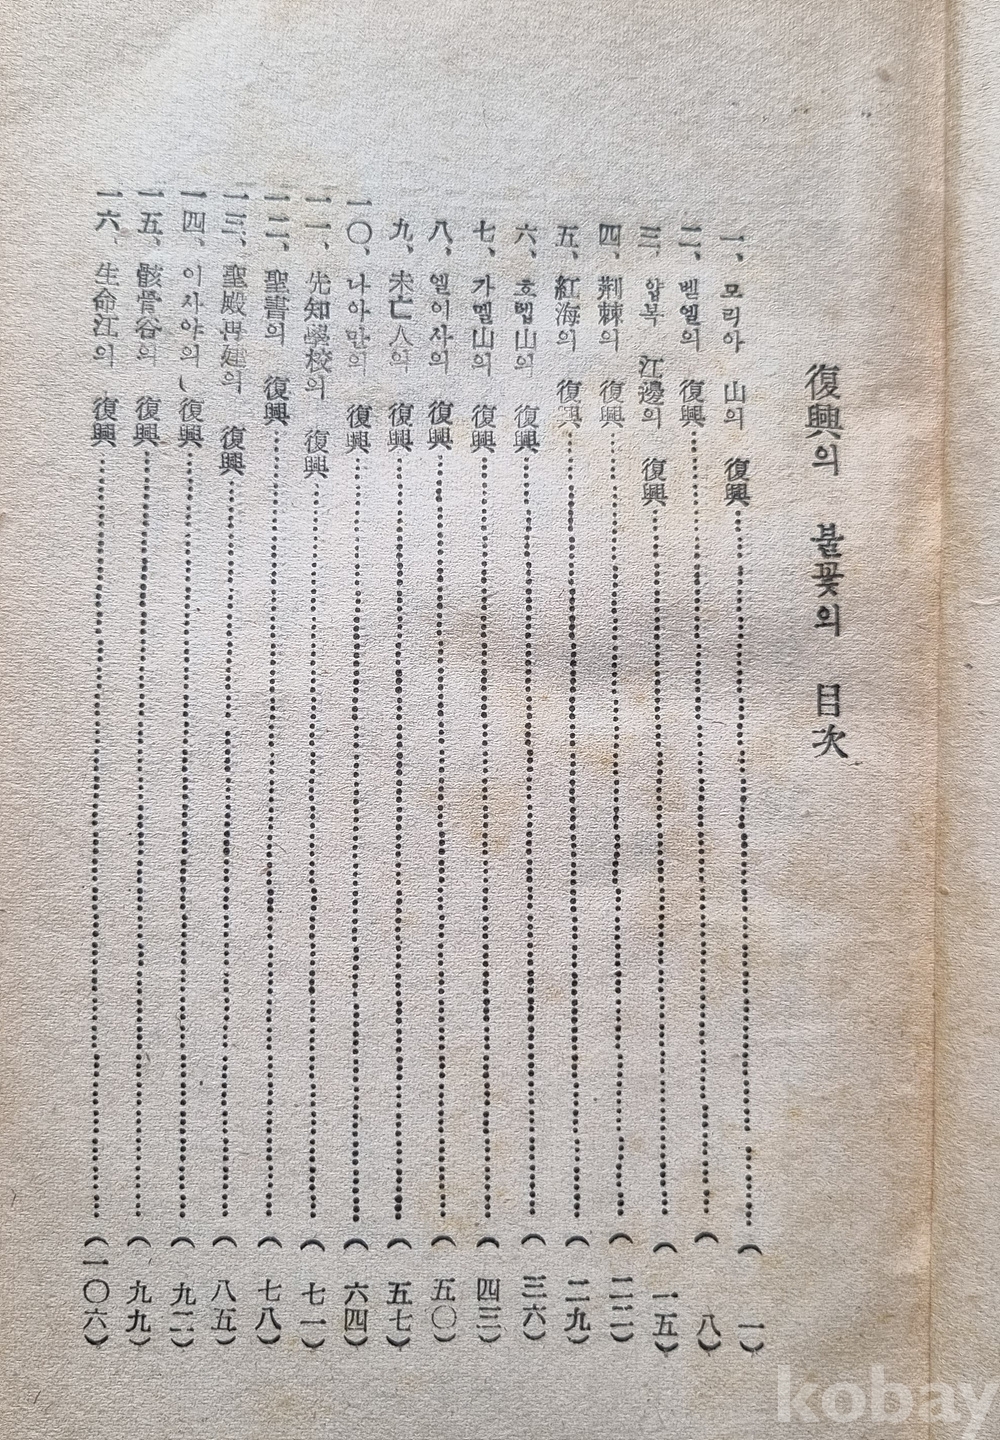 復興의 불꽃의 目次
一、모리아 山의 復興 (一)
二、벧엘의 復興 (八)
三、얍복 江邊의 復興 (一五)
四、荆棘의 復興 (二二)
五、紅海의 復興 (二九)
六、호렙山의 復興 (三六)
七、가멜山의 復興 (四三)
八、엘이사의 復興 (五〇)
九、未亡人의 復興 (五七)
一〇、나아만의 復興 (六四)
一一、先知學校의 復興 (七一)
一二、聖書의 復興 (七八)
一三、聖殿再建의 復興 (八五)
一四、이사야의 復興 (九二)
一五、骸骨谷의 復興 (九九)
一六、生命江의 復興 (一〇六)
kobay